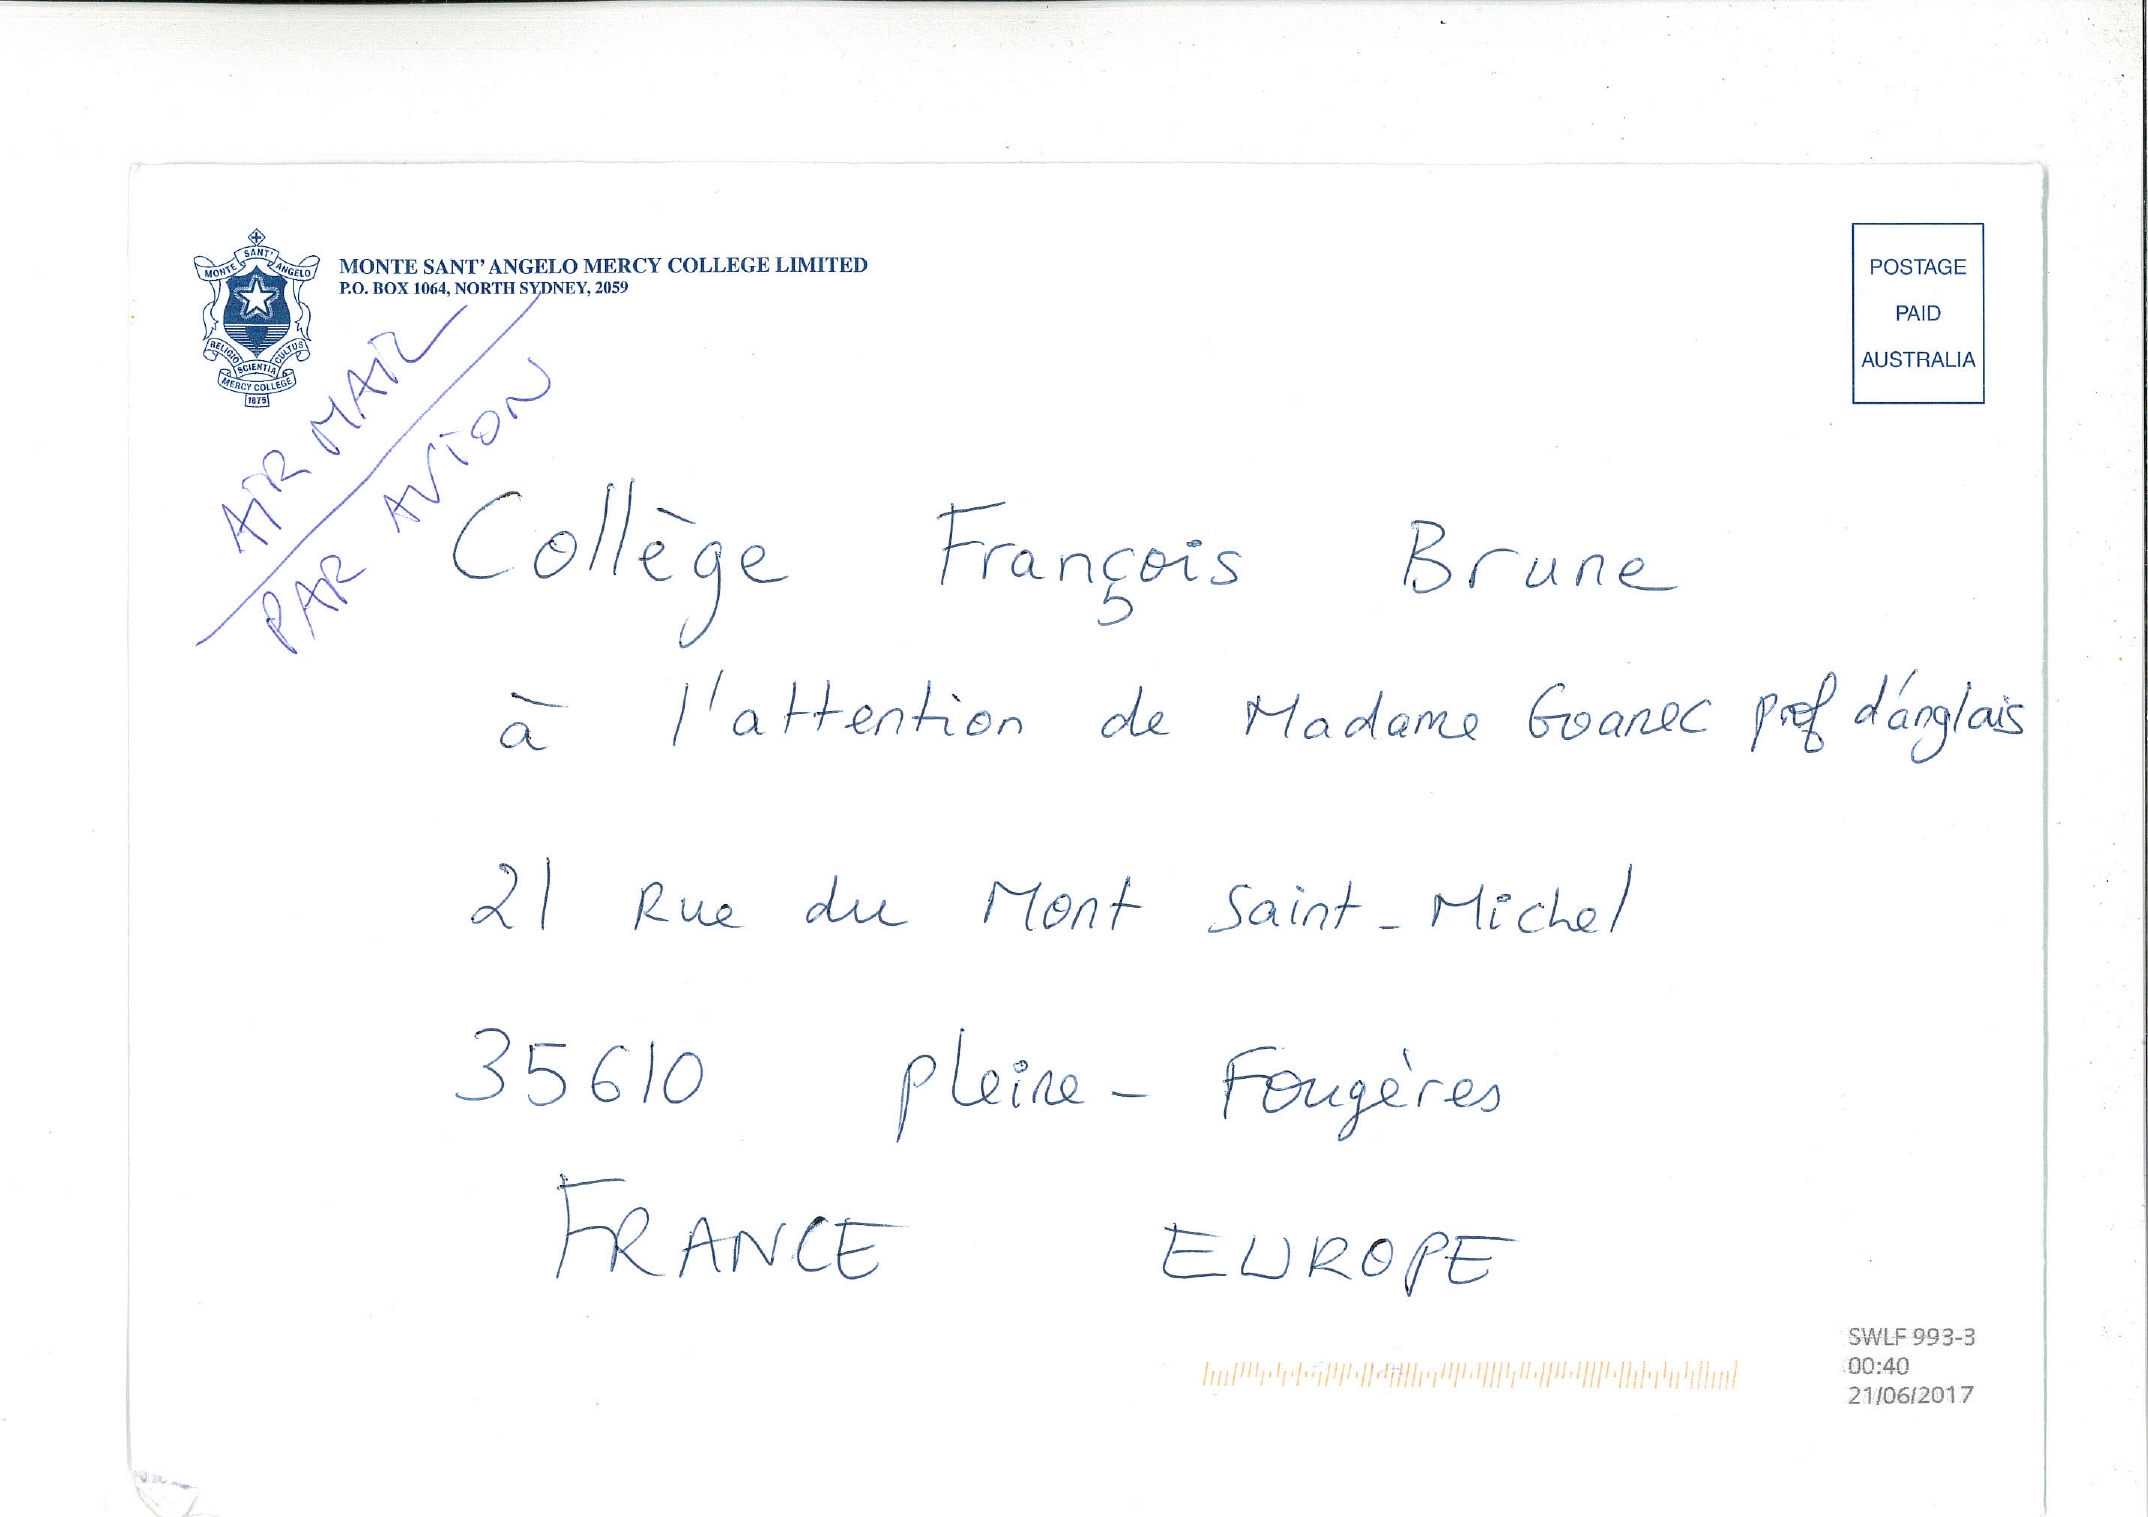 MONTE SANT' ANGELO
MONTE SANT' ANGELO MERCY COLLEGE LIMITED
P.O. BOX 1064, NORTH SYDNEY, 2059
RELIGIO SCIENTIA CULTUS
MERCY COLLEGE
1875
POSTAGE
PAID
AUSTRALIA
AIR MAIL
PAR AVION
Collège François Brune
à l'attention de Madame Goanec prof d'anglais
21 Rue du Mont Saint-Michel
35610 pleine-Fougères
FRANCE EUROPE
SWLF 993-3
00:40
21/06/2017